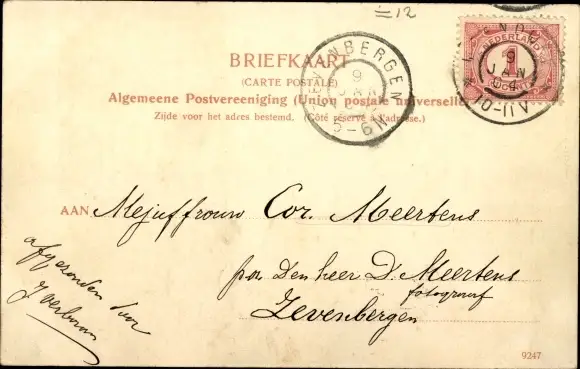 =12
BRIEFKAART
(CARTE POSTALE)
Algemeene Postvereeniging (Union postale universelle)
Zijde voor het adres bestemd. (Côté réservé à l'adresse.)
ZEVENBERGEN
9 JAN
5-6N
NEDERLAND
1
CENT
9
JAN
04
10-11V
AAN Mejuffrouw Cor. Meertens
p/a Den heer D. Meertens
fotograaf
Zevenbergen
afgezonden door
9247